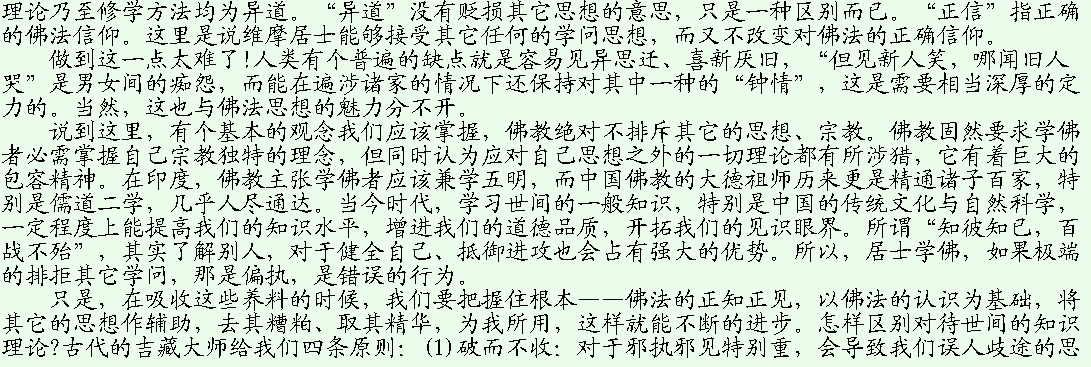 理论乃至修学方法均为异道。“异道”没有贬损其它思想的意思，只是一种区别而已。“正信”指正确
的佛法信仰。这里是说维摩居士能够接受其它任何的学问思想，而又不改变对佛法的正确信仰。
做到这一点太难了!人类有个普遍的缺点就是容易见异思迁、喜新厌旧，“但见新人笑，哪闻旧人
哭”是男女间的痴怨，而能在遍涉诸家的情况下还保持对其中一种的“钟情”，这是需要相当深厚的定
力的。当然，这也与佛法思想的魅力分不开。
说到这里，有个基本的观念我们应该掌握，佛教绝对不排斥其它的思想、宗教。佛教固然要求学佛
者必需掌握自己宗教独特的理念，但同时认为应对自己思想之外的一切理论都有所涉猎，它有着巨大的
包容精神。在印度，佛教主张学佛者应该兼学五明，而中国佛教的大德祖师历来更是精通诸子百家，特
别是儒道二学，几乎人尽通达。当今时代，学习世间的一般知识，特别是中国的传统文化与自然科学，
一定程度上能提高我们的知识水平，增进我们的道德品质，开拓我们的见识眼界。所谓“知彼知已，百
战不殆”，其实了解别人，对于健全自己、抵御进攻也会占有强大的优势。所以，居士学佛，如果极端
的排拒其它学问，那是偏执，是错误的行为。
只是，在吸收这些养料的时候，我们要把握住根本——佛法的正知正见，以佛法的认识为基础，将
其它的思想作辅助，去其糟粕、取其精华，为我所用，这样就能不断的进步。怎样区别对待世间的知识
理论?古代的吉藏大师给我们四条原则：(1)破而不收：对于邪执邪见特别重，会导致我们误人歧途的思